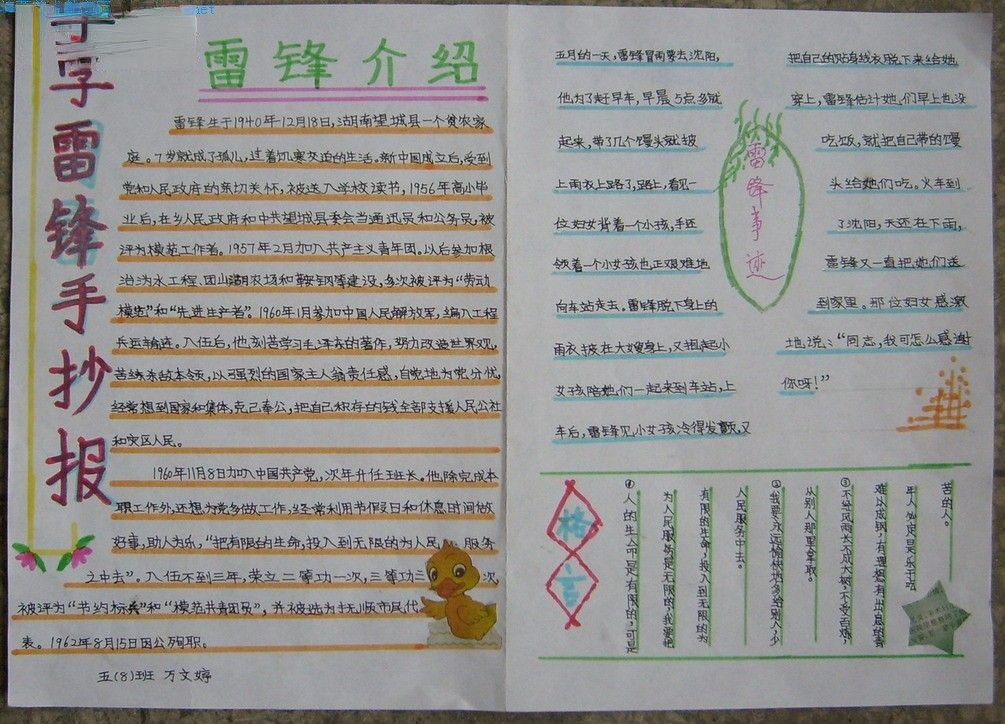 学雷锋手抄报
雷锋介绍
雷锋生于1940年12月18日,湖南望城县一个贫农家
庭。7岁就成了孤儿,过着饥寒交迫的生活。新中国成立后,受到
党和人民政府的亲切关怀,被送入学校读书,1956年高小毕
业后,在乡人民政府和中共望城县委会当通迅员和公务员,被
评为模范工作者。1957年2月加入共产主义青年团。以后参加根
治沩水工程、团山湖农场和鞍钢等建设,多次被评为“劳动
模范”和“先进生产者”。1960年1月参加中国人民解放军,编入工程
兵运输连。入伍后,他刻苦学习毛泽东的著作,努力改造世界观,
苦练杀敌本领,以强烈的国家主人翁责任感,自觉地为党分忧,
经常想到国家和集体,克己奉公,把自己积存的钱全部支援人民公社
和灾区人民。
1960年11月8日加入中国共产党,次年升任班长。他除完成本
职工作外,还想为党多做工作,经常利用节假日和休息时间做
好事,助人为乐,“把有限的生命,投入到无限的为人民服务
之中去”。入伍不到三年,荣立二等功一次,三等功三次,
被评为“节约标兵”和“模范共青团员”,并被选为抚顺市民代
表。1962年8月15日因公殉职。
五(8)班 万文婷
雷锋事迹
五月的一天,雷锋冒雨要去沈阳,
他为了赶早车,早晨5点多就
起来,带了几个馒头就披
上雨衣上路了,路上,看见一
位妇女背着一个小孩,手还
领着一个小女孩也正艰难地
向车站走去。雷锋脱下身上的
雨衣披在大嫂身上,又抱起小
女孩陪她们一起来到车站,上
车后,雷锋见小女孩冷得发颤,又
把自己的贴身线衣脱下来给她
穿上,雷锋估计她们早上也没
吃饭,就把自己带的馒
头给她们吃。火车到
了沈阳,天还在下雨,
雷锋又一直把她们送
到家里。那位妇女感激
地说:“同志,我可怎么感谢
你呀!”
格言
①人的生命是有限的,可是
为人民服务是无限的,我要把
有限的生命,投入到无限的为
人民服务中去。
②我要永远愉快地多给别人,少
从别人那里拿取。
③不经风雨长不成大树,不受百炼,
难以成钢,有理想有出息的青
年人必定是乐于吃
苦的人。